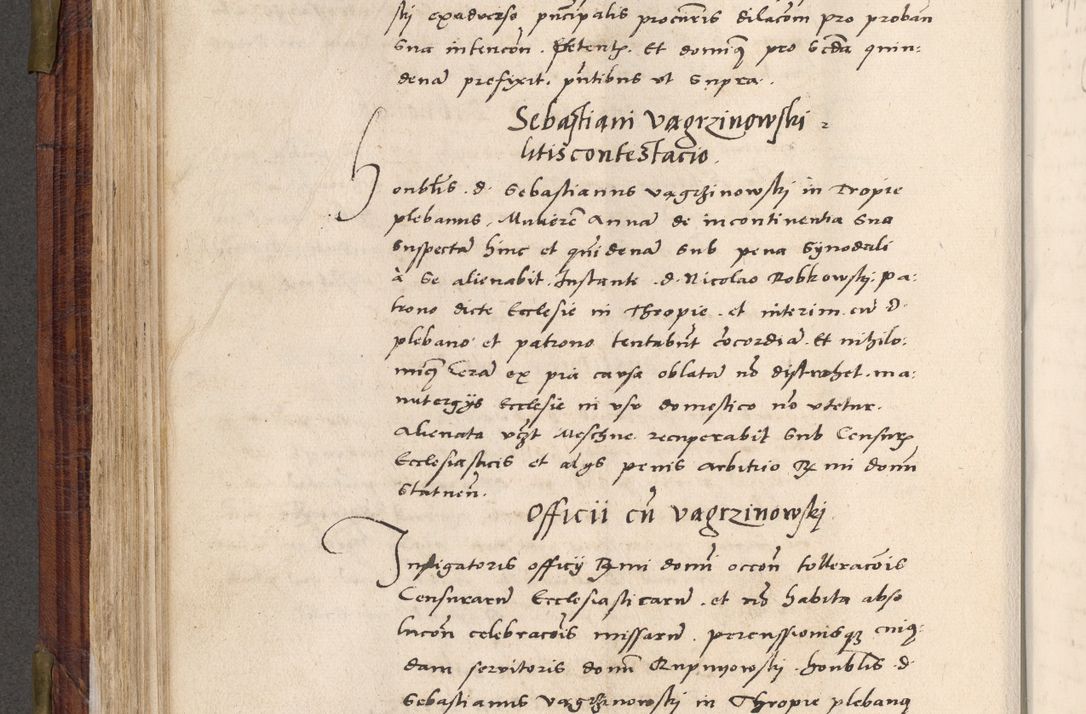 sti exadverso pncipalis procuris dilacom pro proban
sua intencon. petente. Et dominq pro scda quin:
dena prefixit. pntibus ut supra.
Sebastiani Vagrzinowski
litiscontestacio.
Honblis. d. Sebastianus vagrzinowski in Tropie
plebanus, Mulierem Anna de incontinentia sua
suspecta hinc et quidena sub pena synodali
à se alienabit. Instante. d. Nicolao Robkowski. pa:
trono dicte Ecclesie in Thropie. et interim. cu d
plebano et patrono tentabut cocordia. Et nihilo:
minq cera ex pia causa oblata no distrahet. ma:
nutergys Ecclesie in usu domestico no utetur.
Alienata vzt Meschne recuperabit sub Censuris
Ecclesiasticis et alys penis arbitrio R mi domi
statuen.
Officii cu Vagrzinowski
Instigatoris officy Rmi domi occon tolleracois
Censuraru Ecclesiasticaru. et no habita abso
lucon celebracois missaru. percussionisq cuiq:
dam servitoris domi Rupniowski. honblis d
Sebastianus Vagrzinowski in Thropie plebanq